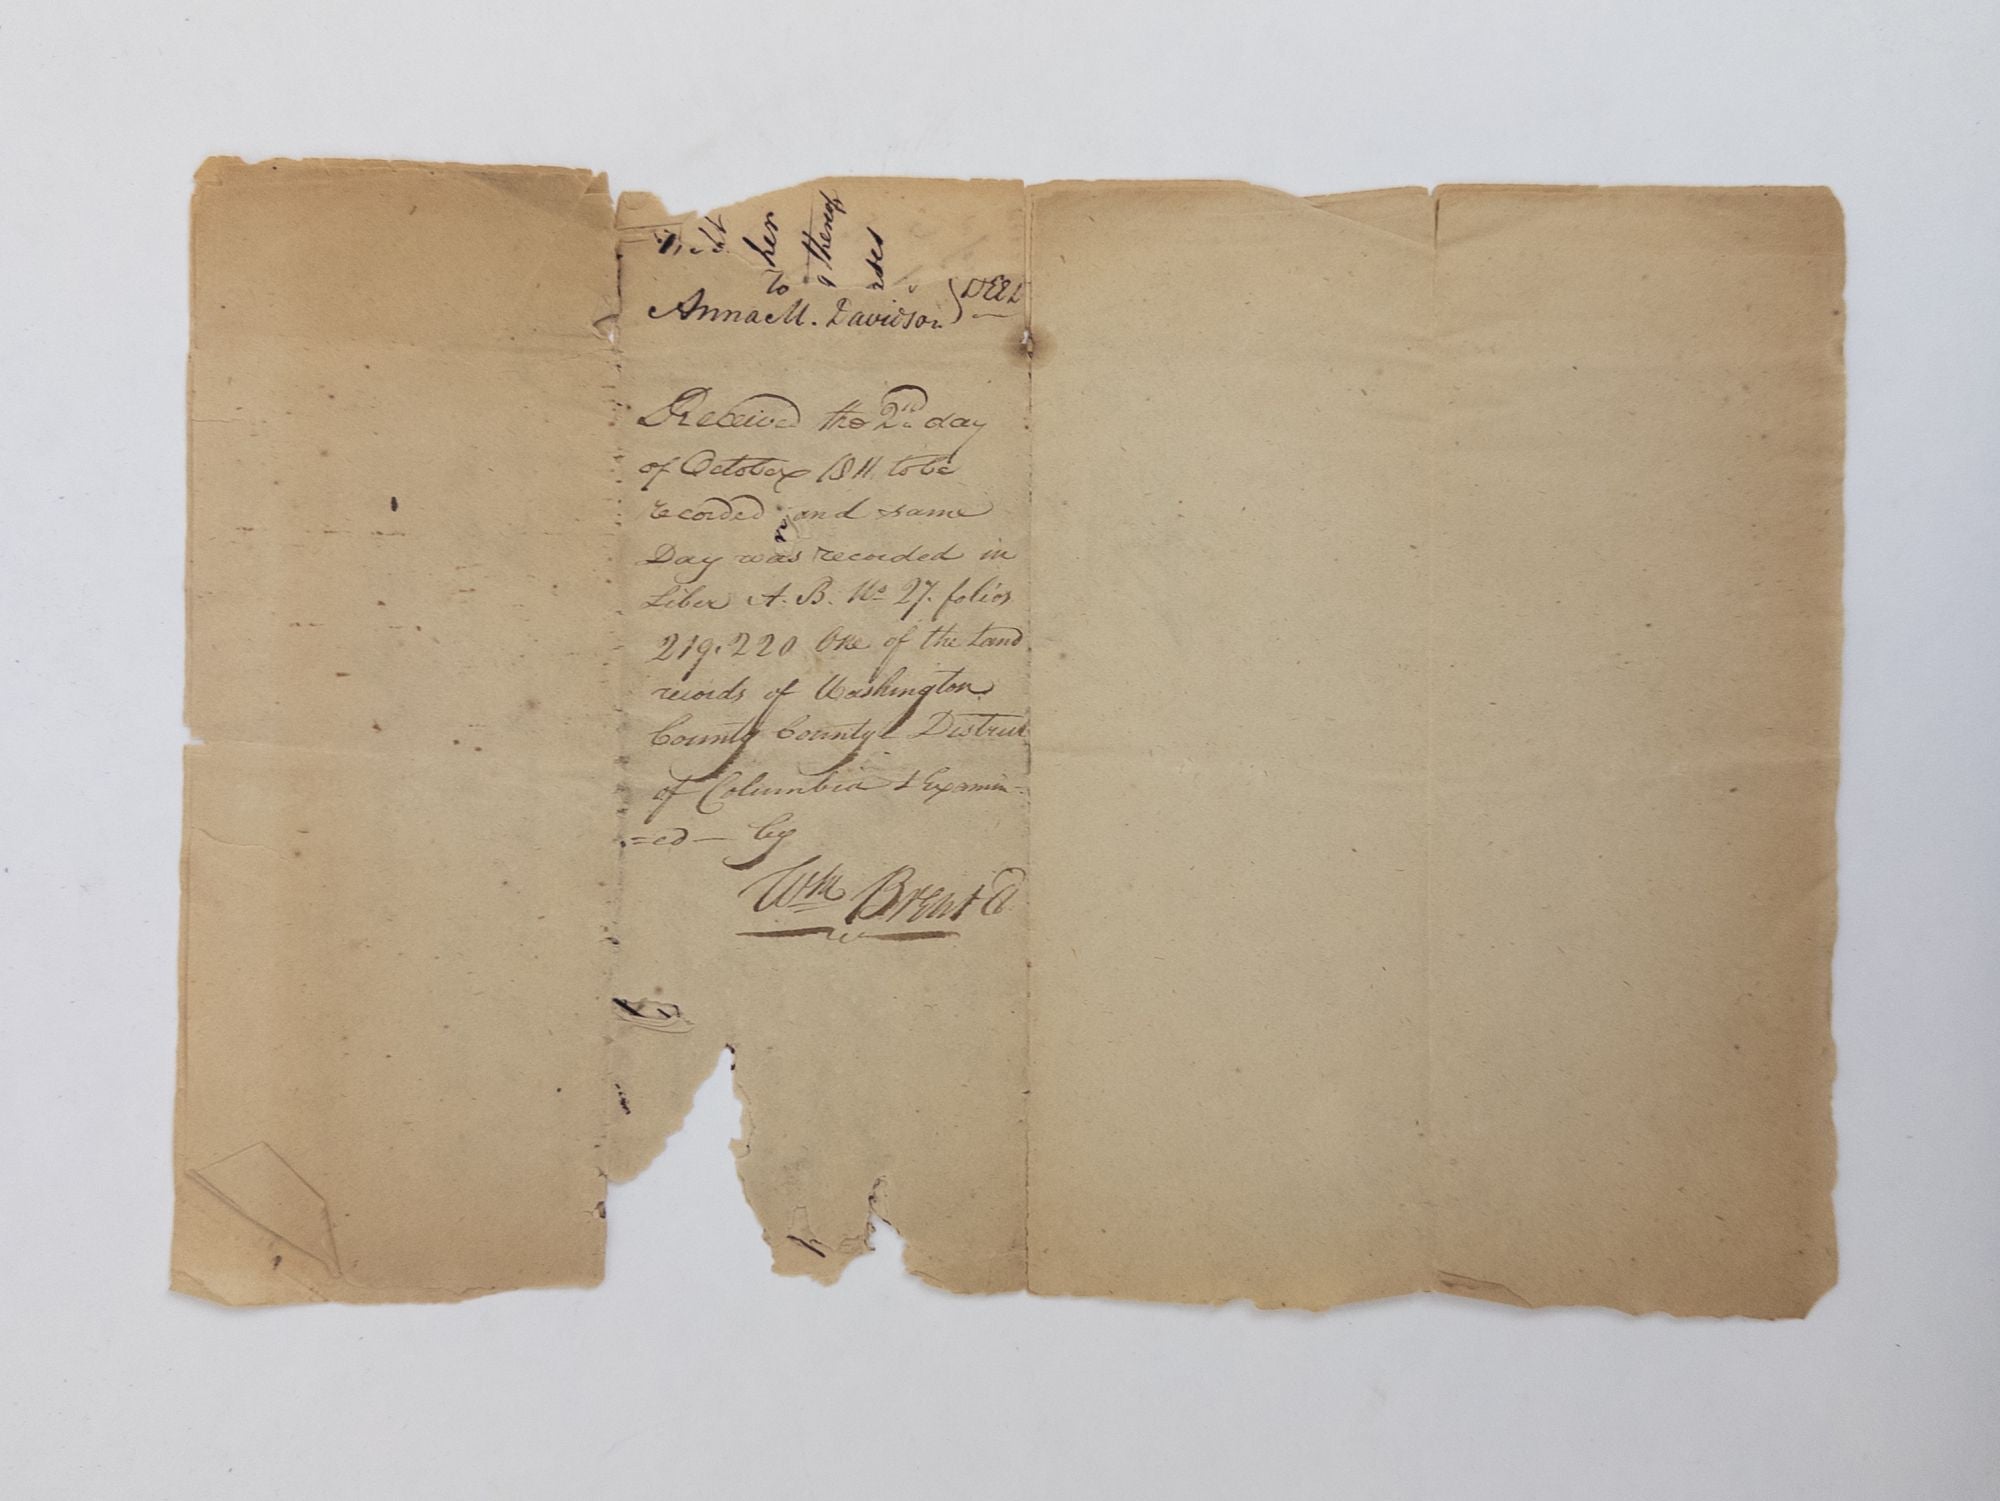 her
thereof
To
Anna M. Davidson } DEED
Received the 2nd day
of October 1811 to be
recorded and same
Day was recorded in
Liber A. B. No 27. folios
219. 220 One of the Land
records of Washington
County County District
of Columbia & Examin=
=ed — by
Wm Brent Cl